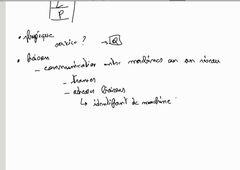 L
P
• Physique
service ? → Q
• liaison
– communication entre machines sur un réseau
– trames
– adresses liaisons
↳ identifiant de machine